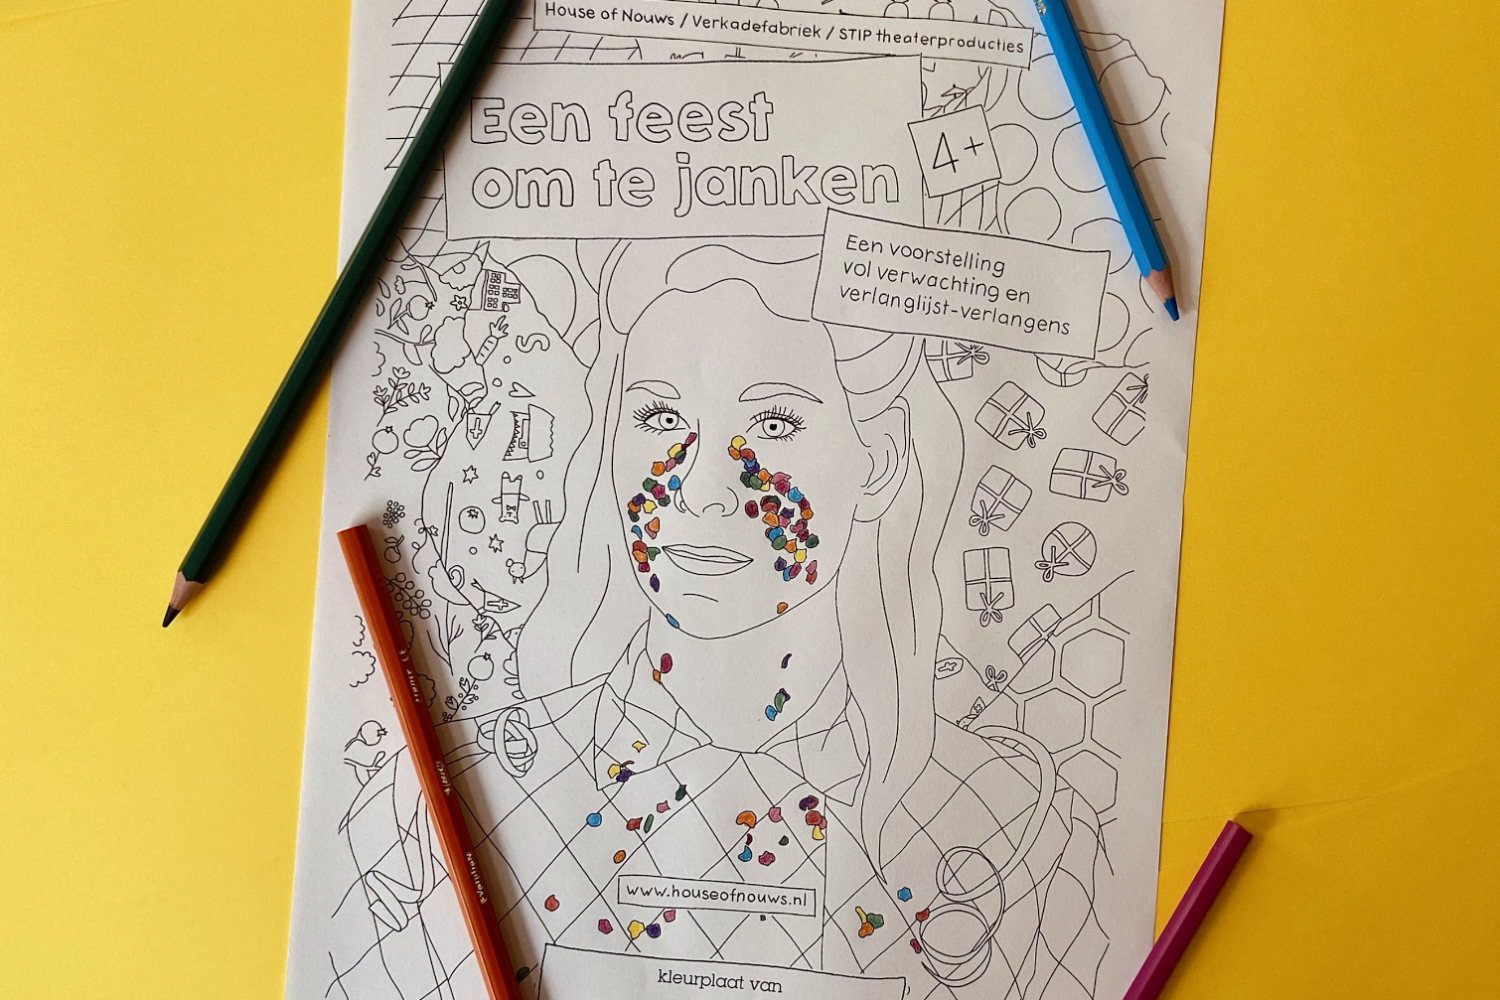 House of Nouws / Verkadefabriek / STIP theaterproducties
Een feest
om te janken
4+
Een voorstelling
vol verwachting en
verlanglijst-verlangens
www.houseofnouws.nl
kleurplaat van